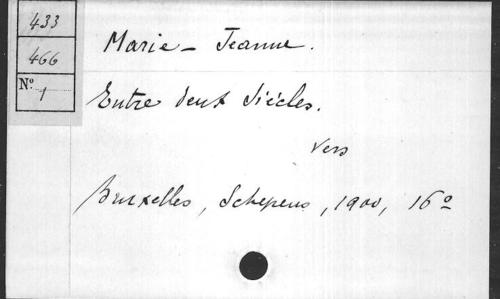 433
466
N° 1
Marie - Jeanne.
Entre deux Siècles.
Vers
Bruxelles, Schepens, 1900, 16°